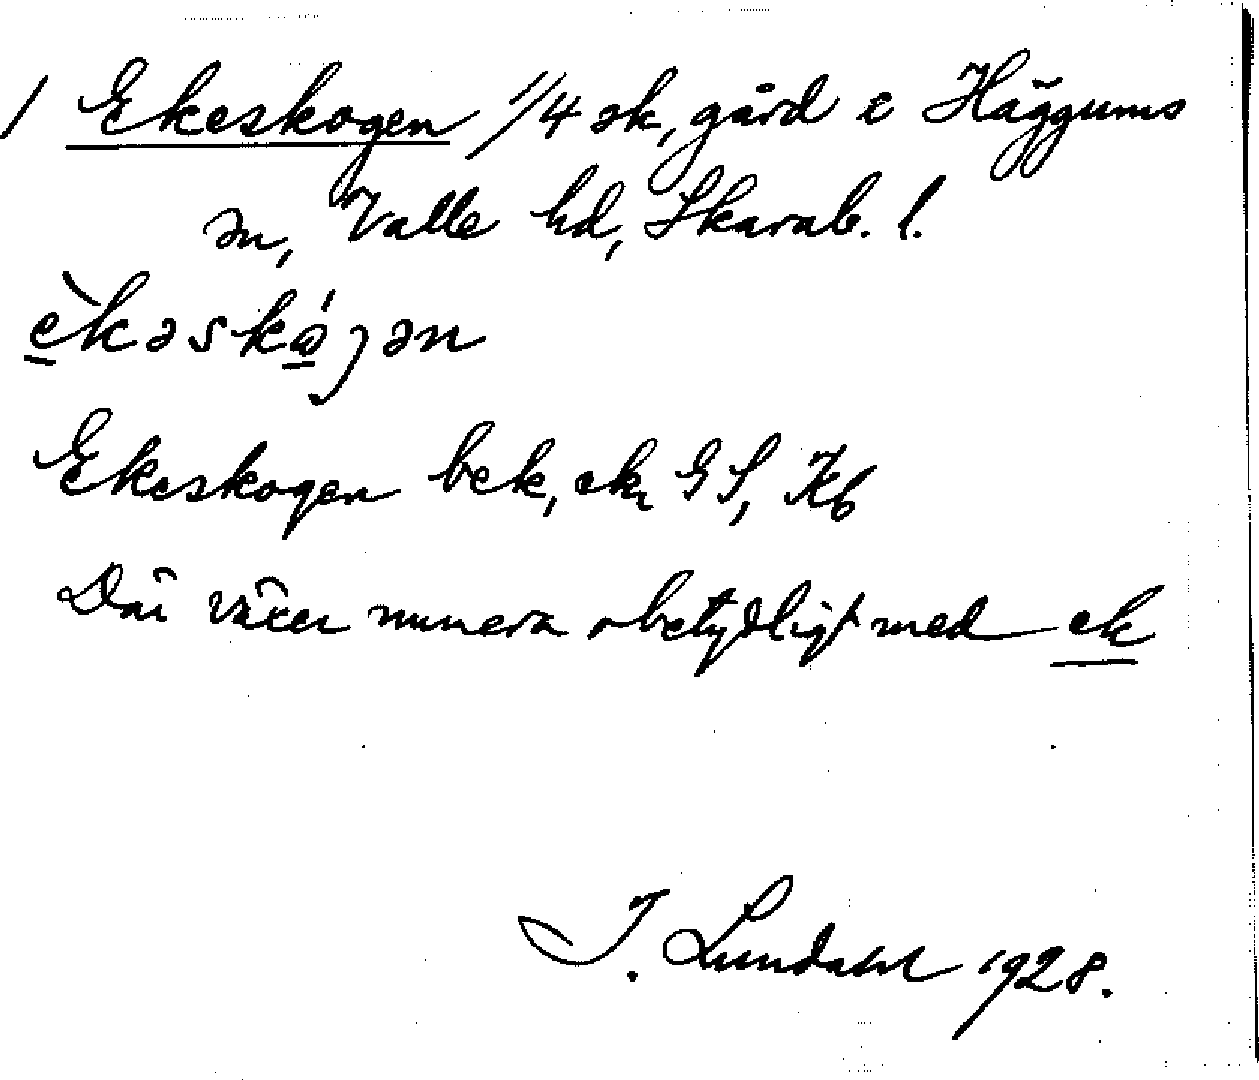 / Ekeskogen 1/4 sk, gård i Häggums
sn, Valle hd, Skarab. l.
Ekeskogen bek, ek, GS, Kb
Där växer numera obetydligt med ek
I. Lundahl 1928.